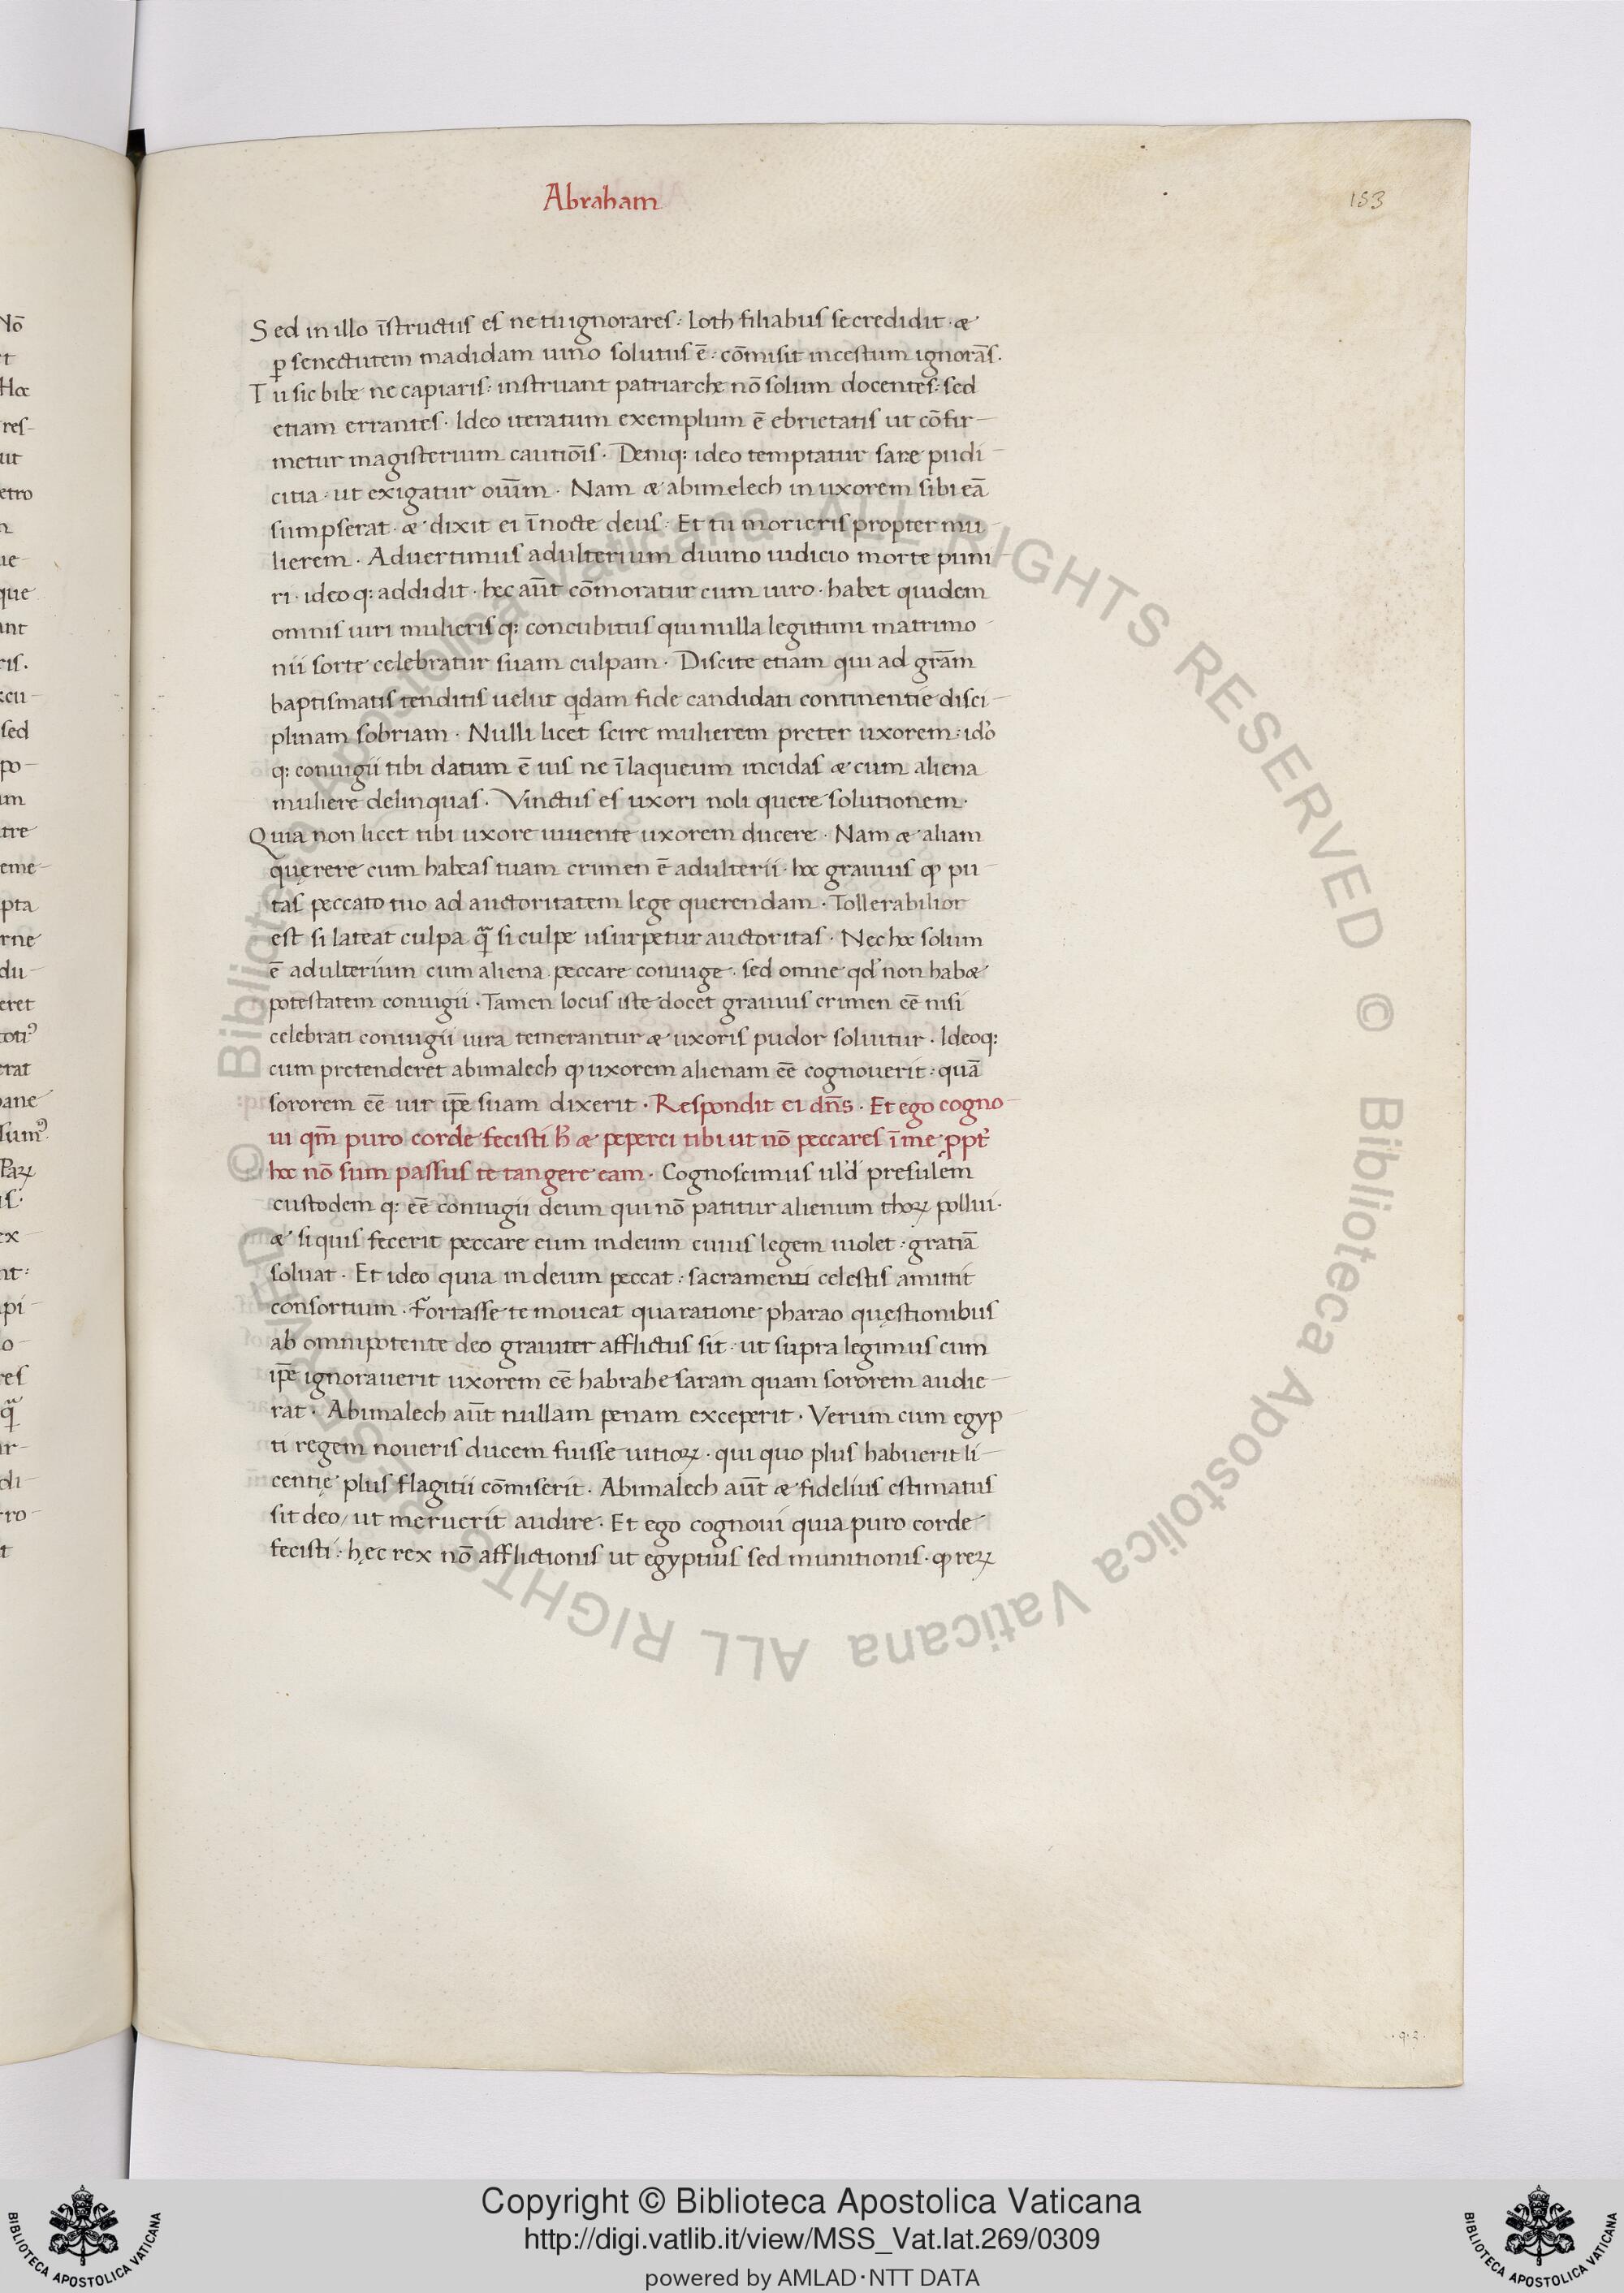 Abraham
153
Sed in illo īstructus es ne tu ignorares· Loth filiabus se credidit· &
ꝑ senectutem madidam uino solutus ē· cōmisit incestum ignorās.
Tu sic bibe ne capiaris· instruant patriarche nō solum docentes· sed
etiam errantes· Ideo iteratum exemplum ē ebrietatis ut cōfir-
metur magisterium cautiōis· Deniq: ideo temptatur sare pudi-
citia· ut exigatur oiūm· Nam & abimelech in uxorem sibi eā
sumpserat· & dixit ei ī nocte deus· Et tu morieris propter mu-
lierem· Aduertimus adulterium diuino iudicio morte puni-
ri· ideoq: addidit· hec aūt cōmoratur cum uiro· habet quidem
omnis uiri mulierisq: concubitus qui nulla legittimi matrimo-
nii sorte celebratur suam culpam· Discite etiam qui ad grām
baptismatis tenditis uelut qdam fide candidati continentie disci-
plinam sobriam· Nulli licet scire mulierem preter uxorem· ido
q: coniugii tibi datum ē ius ne ī laqueum incidas & cum aliena
muliere delinquas· Vinctus es uxori noli querere solutionem·
Quia non licet tibi uxore uiuente uxorem ducere· Nam & aliam
quęrere cum habeas tuam crimen ē adulterii· hoc grauius ꝙ pu-
tas peccato tuo ad auctoritatem lege querendam· Tollerabilior
est si lateat culpa q̄ si culpe usurpetur auctoritas· Nec hoc solum
ē adulterium cum aliena peccare coniuge· sed omne qd' non hab&
potestatem coniugii· Tamen locus iste docet grauius crimen eē nisi
celebrati coniugii iura temerantur & uxoris pudor soluitur· Ideoq:
cum pretenderet abimalech ꝙ uxorem alienam eē cognouerit· quā
sororem eē uir ip̄e suam dixerit· Respondit ei dn̄s· Et ego cogno-
ui qm̄ puro corde fecisti h' & peperci tibi ut nō peccares ī me ꝓpt'
hoc nō sum passus te tangere eam· Cognoscimus uld' presulem
custodemq: eē coniugii deum qui nō patitur alienum thoꝝ pollui·
& si quis fecerit peccare eum in deum cuius legem uiolet· gratiā
soluat· Et ideo quia in deum peccat· sacramenti celestis amittit
consortium· Fortasse te moueat qua ratione pharao quęstionibus
ab omnipotente deo grauiter afflictus sit· ut supra legimus cum
ip̄e ignorauerit uxorem eē habrahe saram quam sororem audie-
rat· Abimalech aūt nullam penam exceperit· Verum cum egyp-
ti regem noueris ducem fuisse uitioꝝ· qui quo plus habuerit li-
centię plus flagitii cōmiserit· Abimalech aūt & fidelius estimatus
sit deo/ ut meruerit audire· Et ego cognoui quia puro corde
fecisti· hęc rex nō afflictionis ut egyptius sed munitionis· ꝙ reꝝ
Copyright © Biblioteca Apostolica Vaticana
http://digi.vatlib.it/view/MSS_Vat.lat.269/0309
powered by AMLAD·NTT DATA